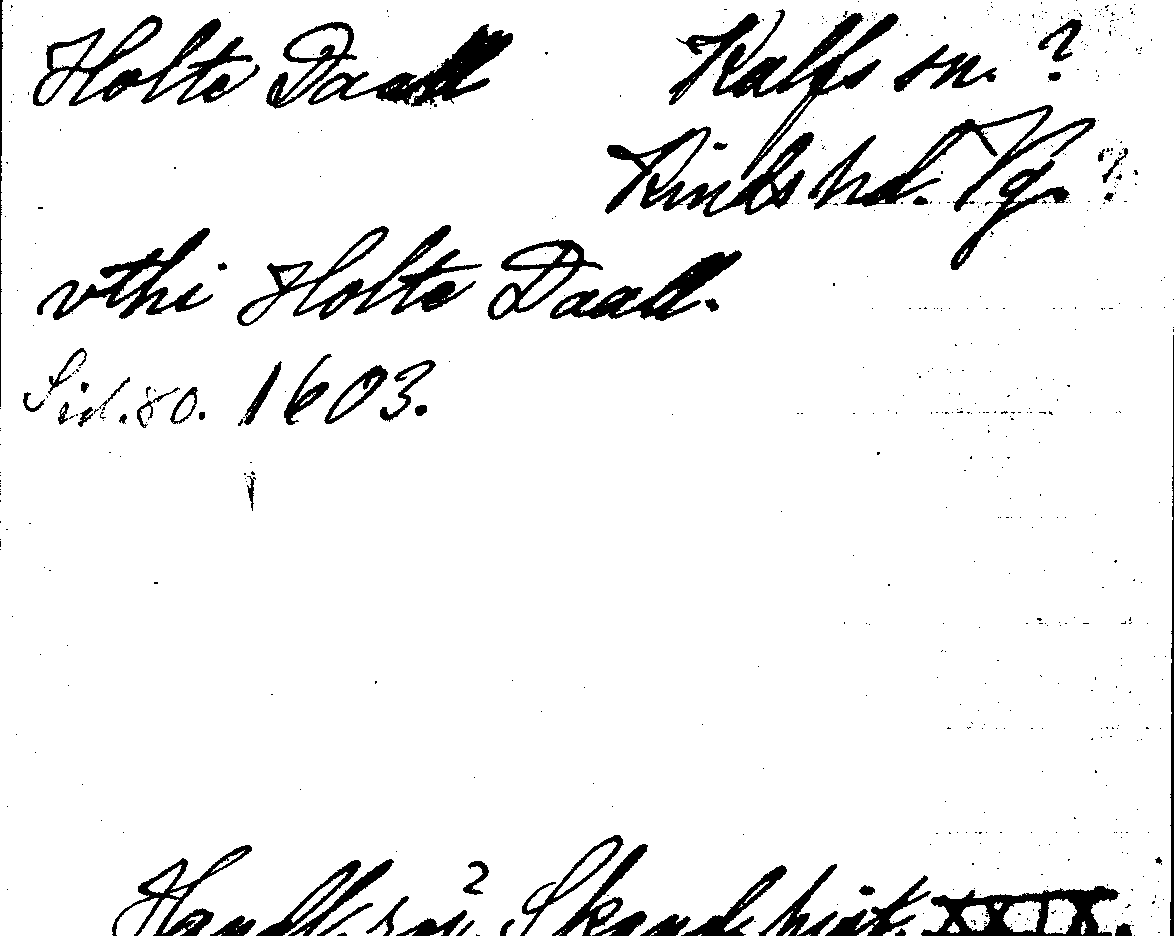 Holte Daad Kalfs sn. ?
Kinds hd. Vg. ?
vthi Holte Daad.
Sid. 80. 1603.
Handl. rör. Skand. hist. XXIX.